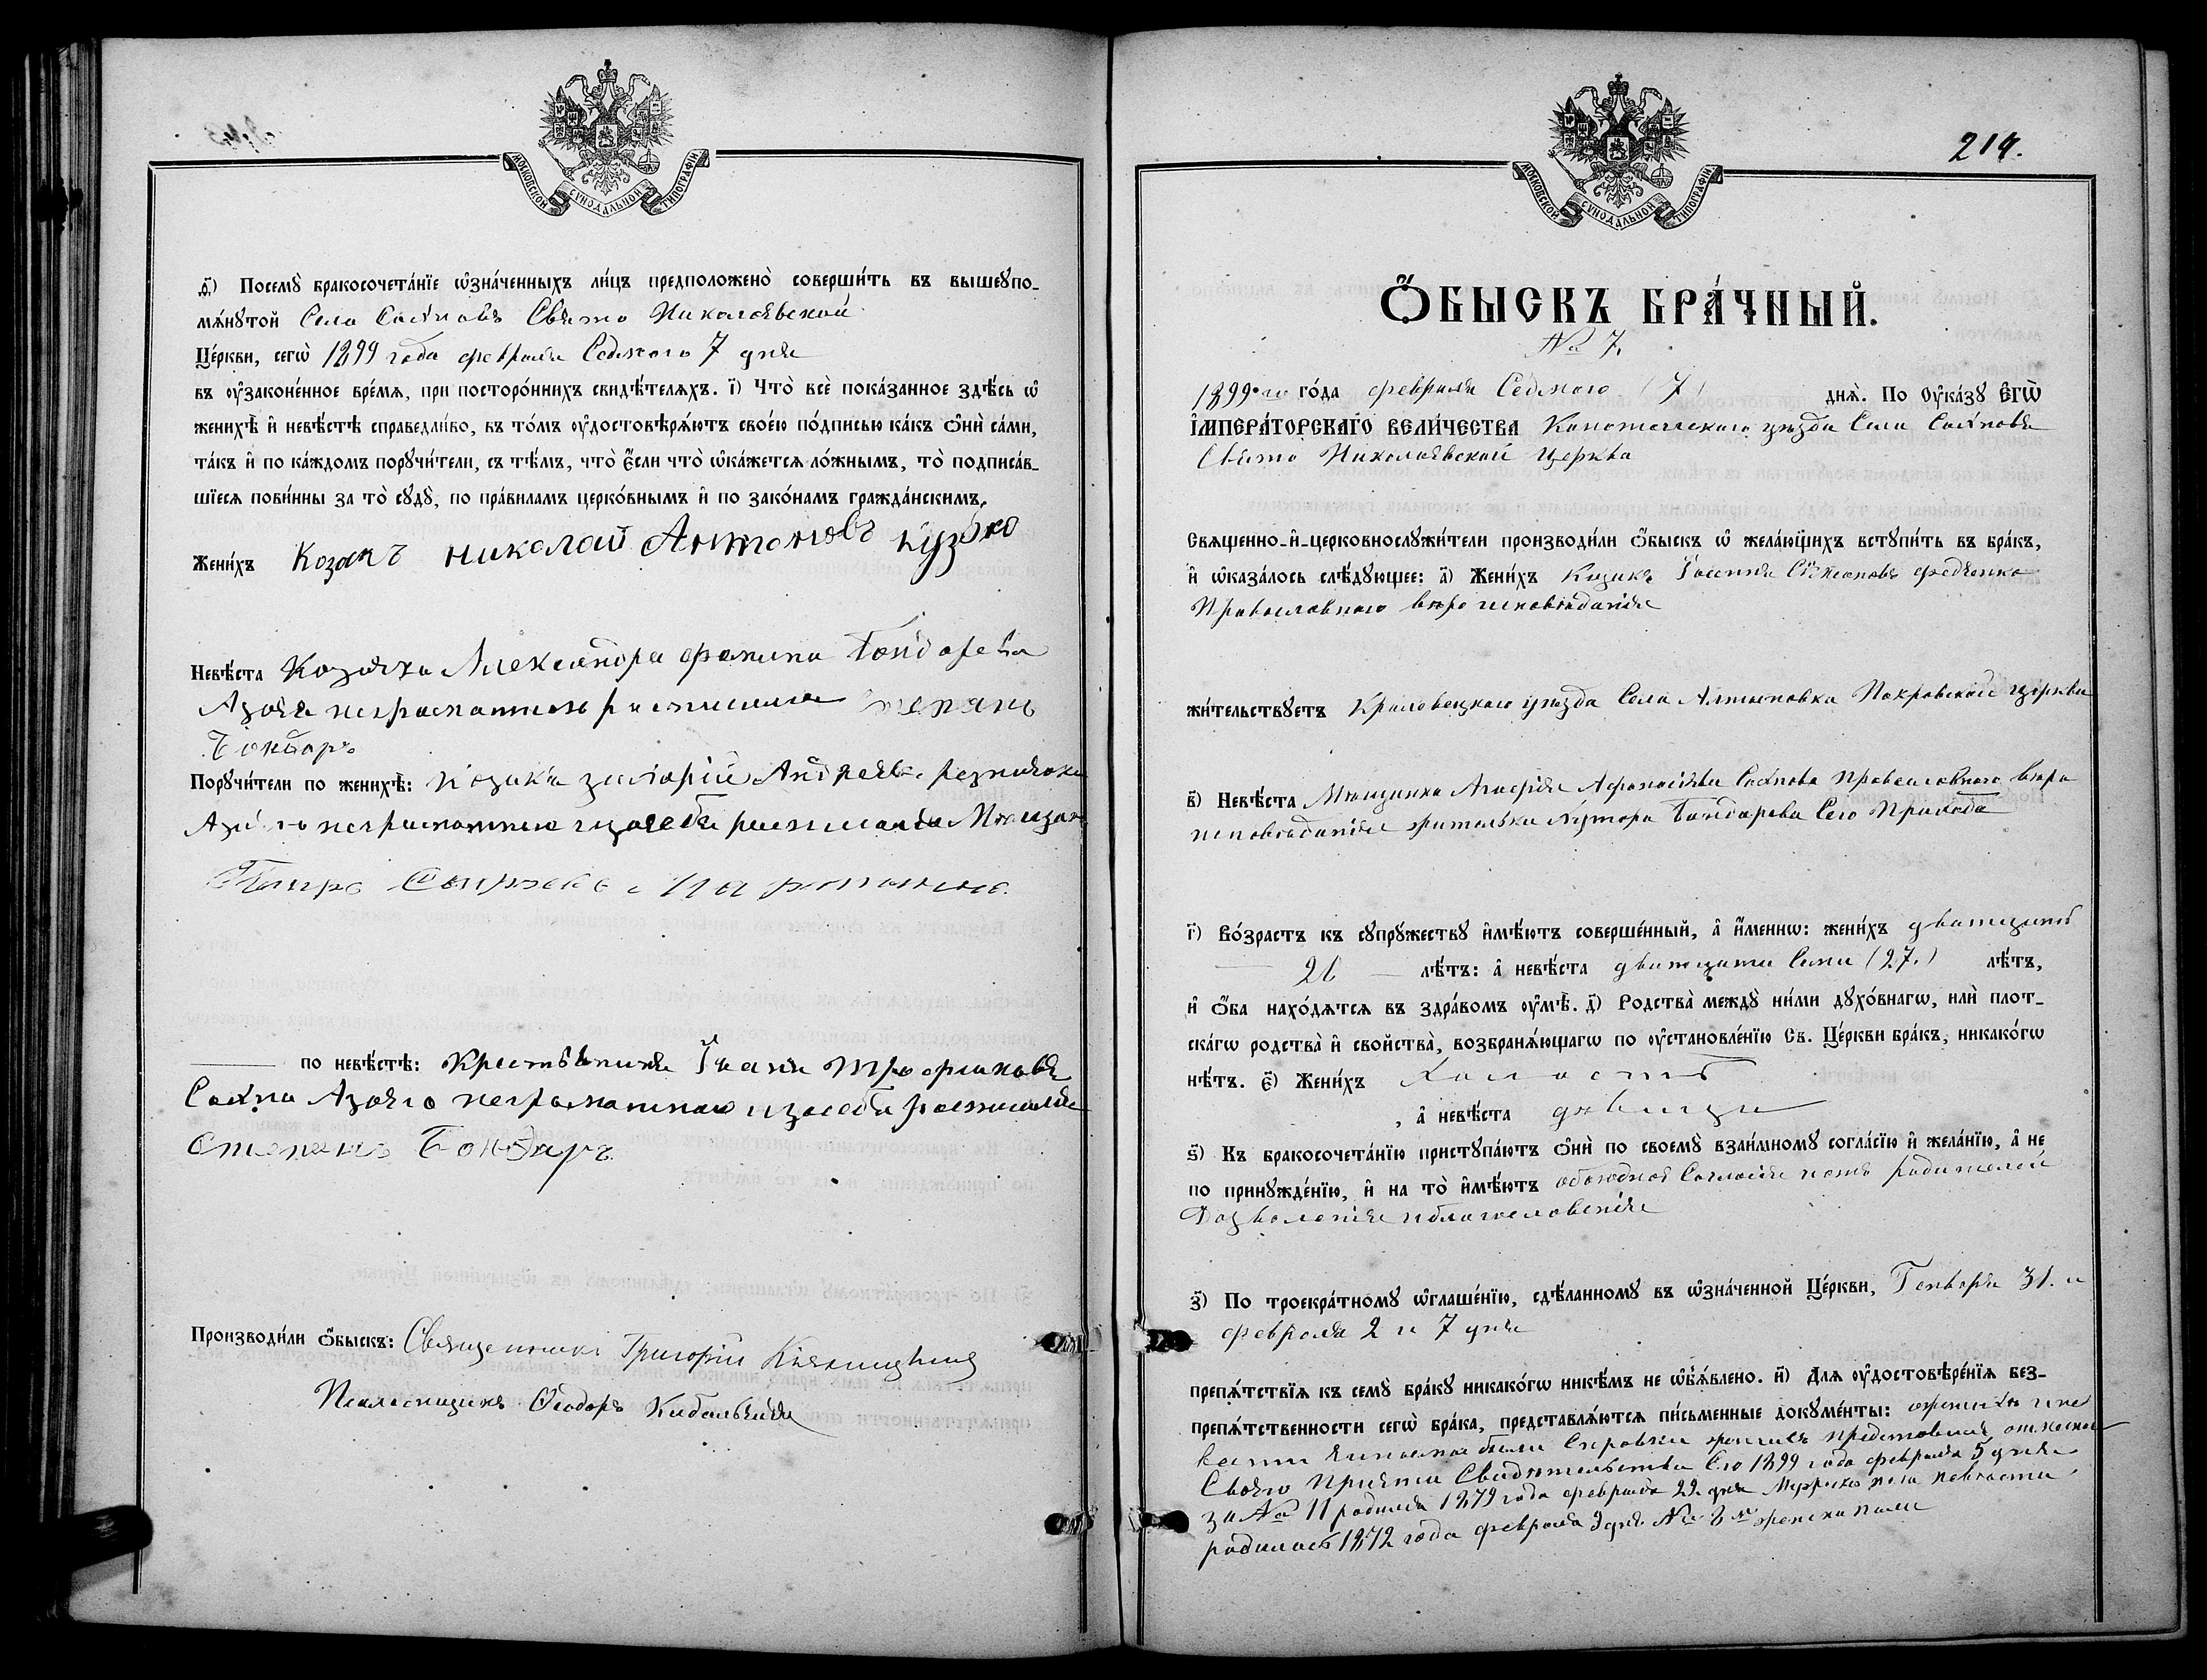 МОСКОВСКОЙ СѴНОДАЛЬНОЙ ТИПОГРАФІИ
ѳ҃) Посемꙋ̀ бракосочета́нїе ѡ҆зна́ченныхъ ли́цъ предположено̀ соверши́ть въ вышеꙋпо-
мѧ́нꙋтой Села Сахновъ Свято Николаевской
Це́ркви, сегѡ̀ 1899 года февраля Седмого 7 дня
въ ᲂу҆законе́нное вре́мѧ, при посторо́ннихъ свидѣ́телѧхъ. і҃) Что̀ всѐ пока́занное здѣ́сь ѡ҆
женихѣ̀ и҆ невѣ́стѣ справедли́во, въ то́мъ ᲂу҆достовѣрѧ́ютъ свое́ю по́дписью ка́къ ѻ҆нѝ са́ми,
та́къ и҆ по ка́ждомъ порꙋчи́тели, съ тѣ́мъ, что̀ є҆́сли что̀ ѡ҆ка́жетсѧ ло́жнымъ, то̀ подписа́в-
шїесѧ пови́нны за то̀ сꙋдꙋ̀, по пра́виламъ церко́внымъ и҆ по зако́намъ гражда́нскимъ.
Жени́хъ Козакъ николай Антоновъ кузько
Невѣ́ста Козачка Александра фомина Бондарева
Азанея неграматнои росписался степанъ
Бондарь
Порꙋчи́тели по женихѣ̀: Козакъ Андреевъ
неграматного и засебя росписался Мещан
Петро
по невѣ́стѣ: Крестьянинъ Іоанъ трофимовъ
Сахно Азанего неграматного изасебя росписался
степанъ Бондарь
Производи́ли ѻ҆́быскъ: Священникъ Григорій
Псаломщикъ Ѳеодоръ Кибальчичъ
МОСКОВСКОЙ СѴНОДАЛЬНОЙ ТИПОГРАФІИ
214.
Ѻ҆́БЫСКЪ БРА́ЧНЫЙ.
№ 7.
1899-го го́да февраля Седмого (7) днѧ̀. По Оу҆ка́зꙋ Є҆гѡ̀
І҆МПЕРА́ТОРСКАГО ВЕЛИ́ЧЕСТВА Конотопского уезда Села Сахновъ
Свято Николаевской Церкви
Свѧщенно-и҆-церковнослꙋжи́тели производи́ли ѻ҆́быскъ ѡ҆ жела́ющихъ встꙋпи́ть въ бра́къ,
и҆ ѡ҆каза́лось слѣ́дꙋющее: а҃) Жени́хъ Козакъ Іоаннъ Стефановъ федченко
Православного вероисповеданія
жи́тельствꙋетъ Кролевецкого уезда Села Алтыновка Покровской церкви
в҃) Невѣ́ста Мещанка Агафія Афонасіева Сахнова Православного веро
исповеданія жителька хутора Бондарева Сего Прихода
г҃) Во́зрастъ къ сꙋпрꙋ́жествꙋ и҆мѣ́ютъ соверше́нный, а҆ и҆́меннѡ: жени́хъ дватцать
лѣ́тъ: а҆ невѣ́ста дватцати Семи (27.) лѣ́тъ,
и҆ ѻ҆́ба нахо́дѧтсѧ въ здра́вомъ ᲂу҆мѣ̀. д҃) Родства̀ междꙋ̀ ни́ми дꙋхо́внагѡ, илѝ плот-
ска́гѡ родства̀ и҆ свойства̀, возбранѧ́ющагѡ по ᲂу҆становле́нїю Св. Це́ркви бра́къ, никако́гѡ
нѣ́тъ. є҃) Жени́хъ Холостъ
, а҆ невѣ́ста девица
ѕ҃) Къ бракосочета́нїю пристꙋпа́ютъ ѻ҆нѝ по своемꙋ̀ взаи́мномꙋ согла́сїю и҆ жела́нїю, а҆ не
по принꙋжде́нїю, и҆ на то̀ и҆мѣ́ютъ обоюдное Согласіе ихъ родителей
Дозволеніе и благословеніе
з҃) По троекра́тномꙋ ѡ҆глаше́нїю, сдѣ́ланномꙋ въ ѡ҆зна́ченной Це́ркви, Генваря 31. и
февраля 2 и 7 дня
препѧ́тствїѧ къ семꙋ̀ бра́кꙋ никако́гѡ никѣ́мъ не ѡ҆б̾ѧ́влено. и҃) Длѧ ᲂу҆достовѣре́нїѧ без-
препѧ́тственности сегѡ̀ бра́ка, представлѧ́ютсѧ пи́сьменные докꙋме́нты:
жених Предстовилъ
Своего Причта Свидетельства Его 1899 года февраля 5 дня
за № 11 родился 1879 года февраля 22 дня невеста
родилась 1872 года февраля 3 дня №